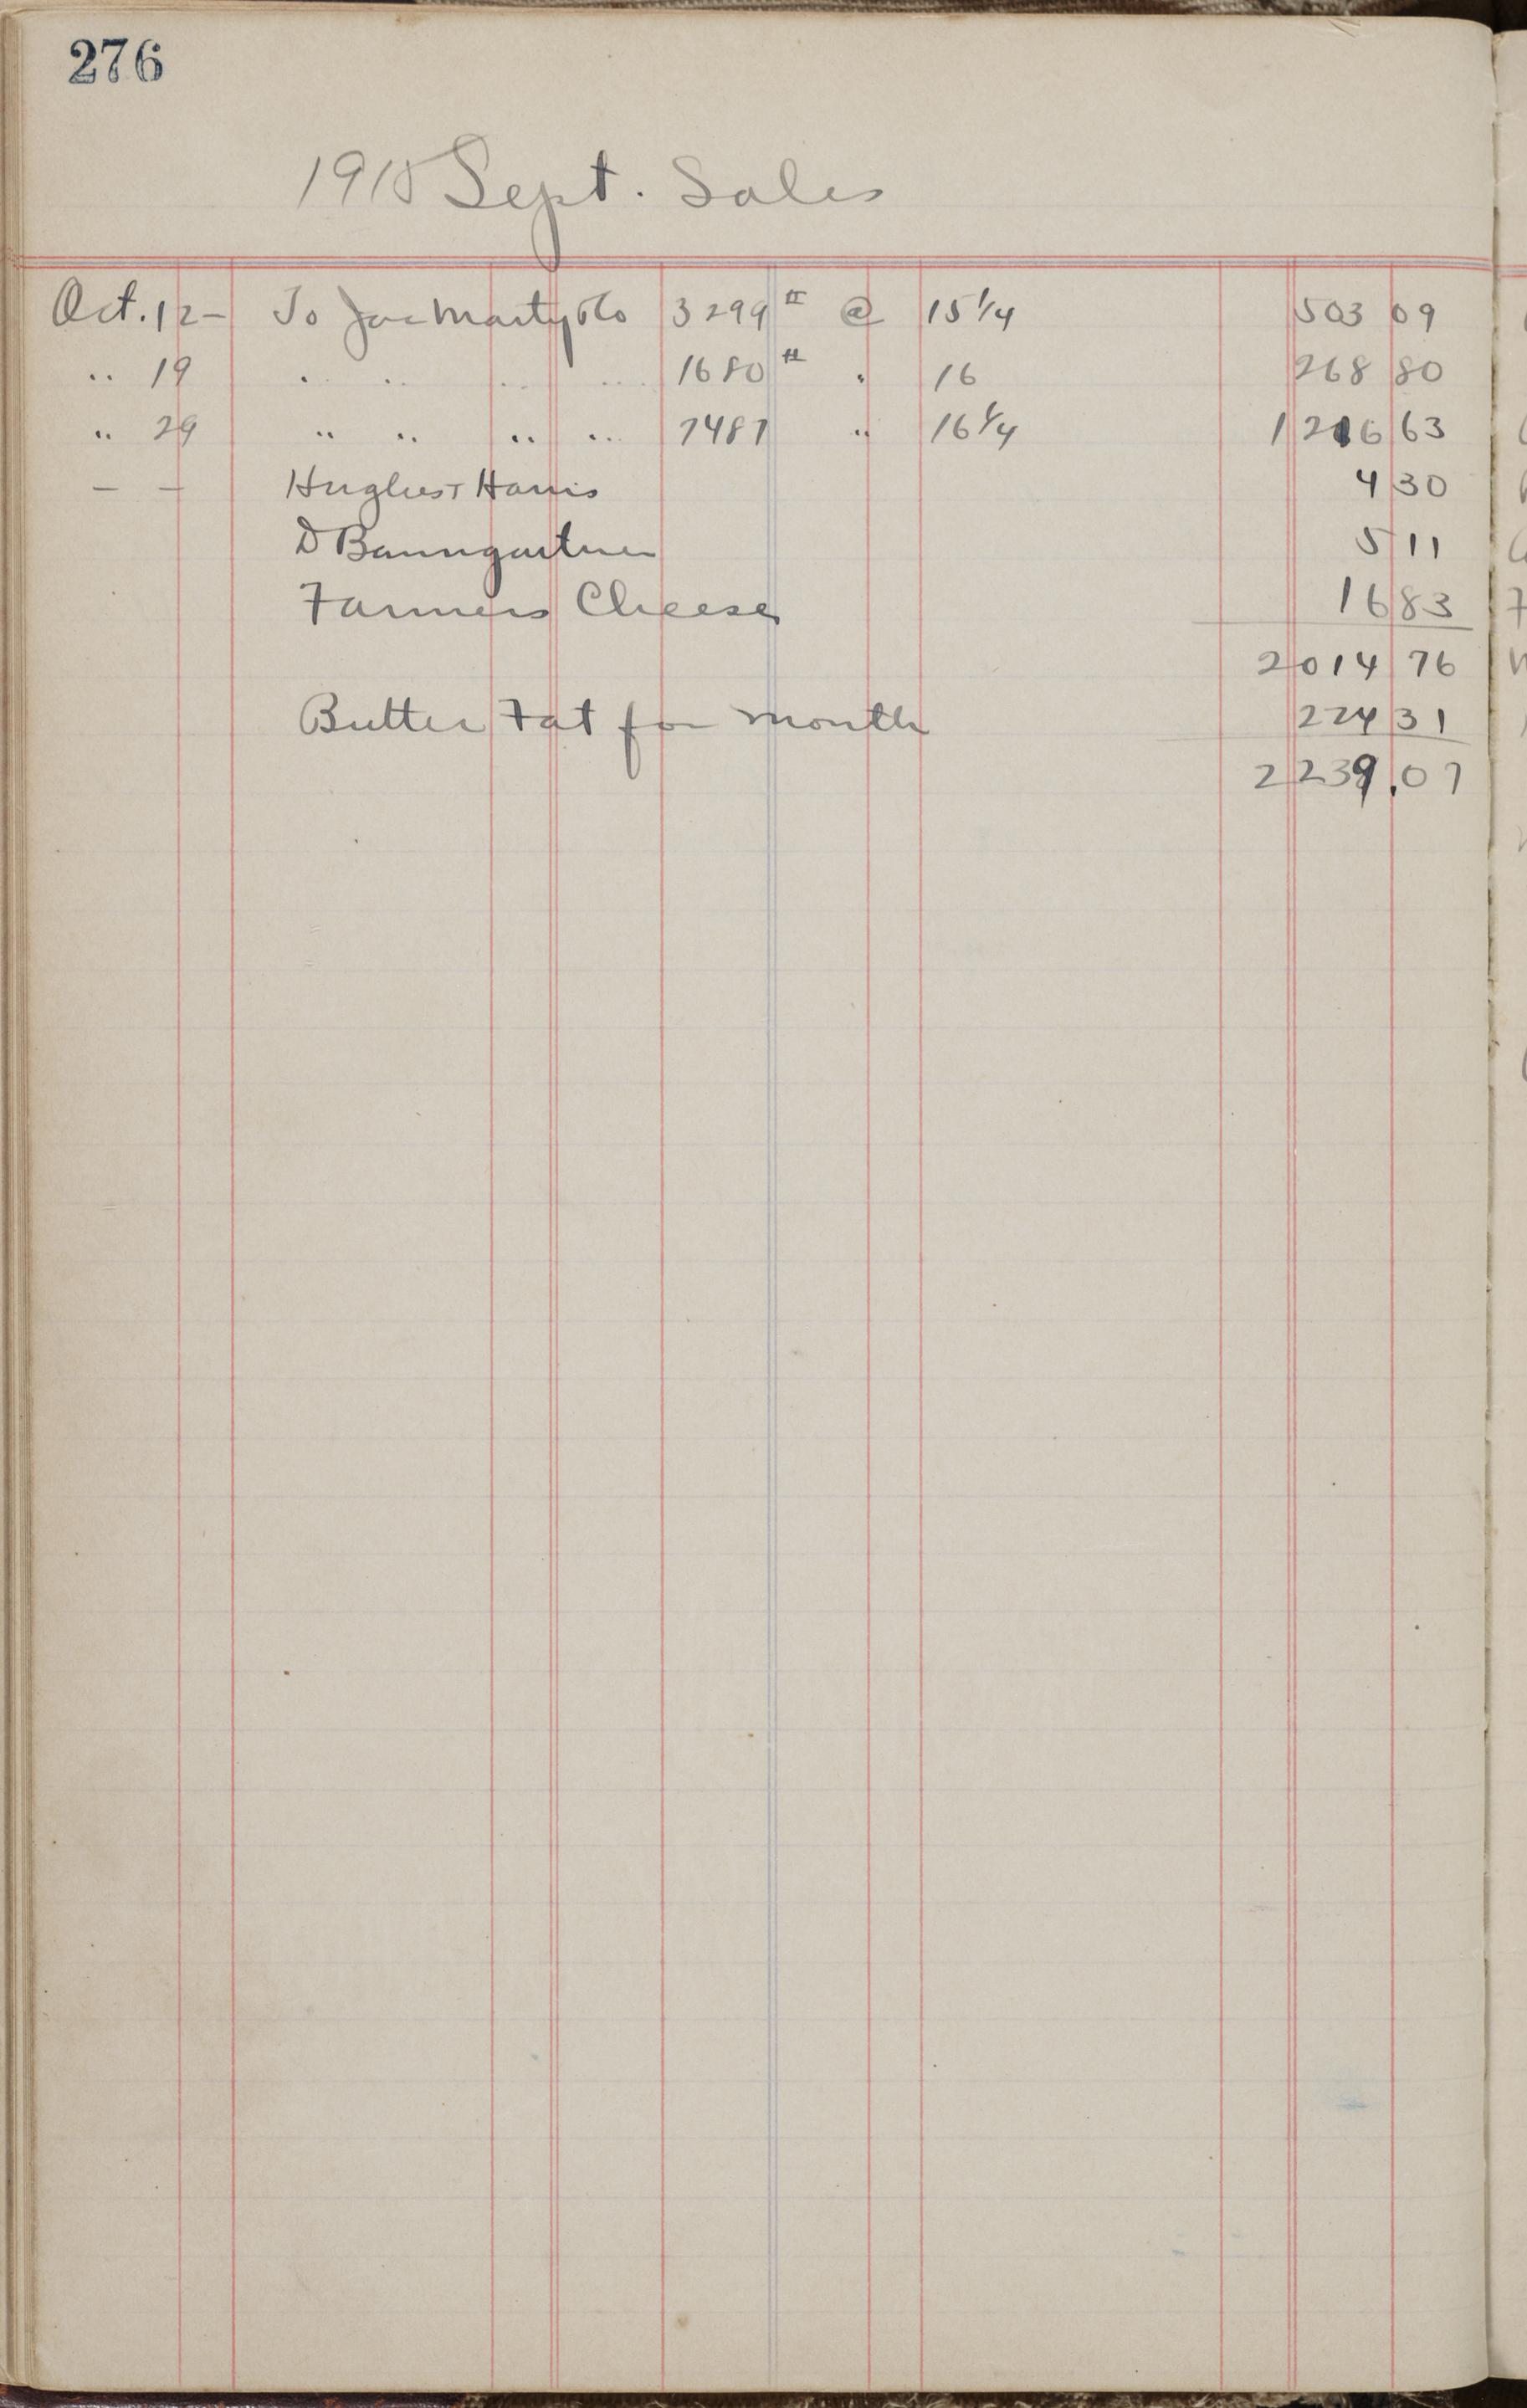 276
1910 Sept. Sales
Oct. 12 – To Jac Marty & Co 3299 # @ 15 1/4 503 09
" 19 " " " " 1680 # " 16 268 80
" 29 " " " " 7487 " 16 1/4 1216 63
– – Hughes + Harris 4 30
D Baumgartner 5 11
Farmers Cheese 16 83
2014 76
Butter Fat for month 224 31
2239.07